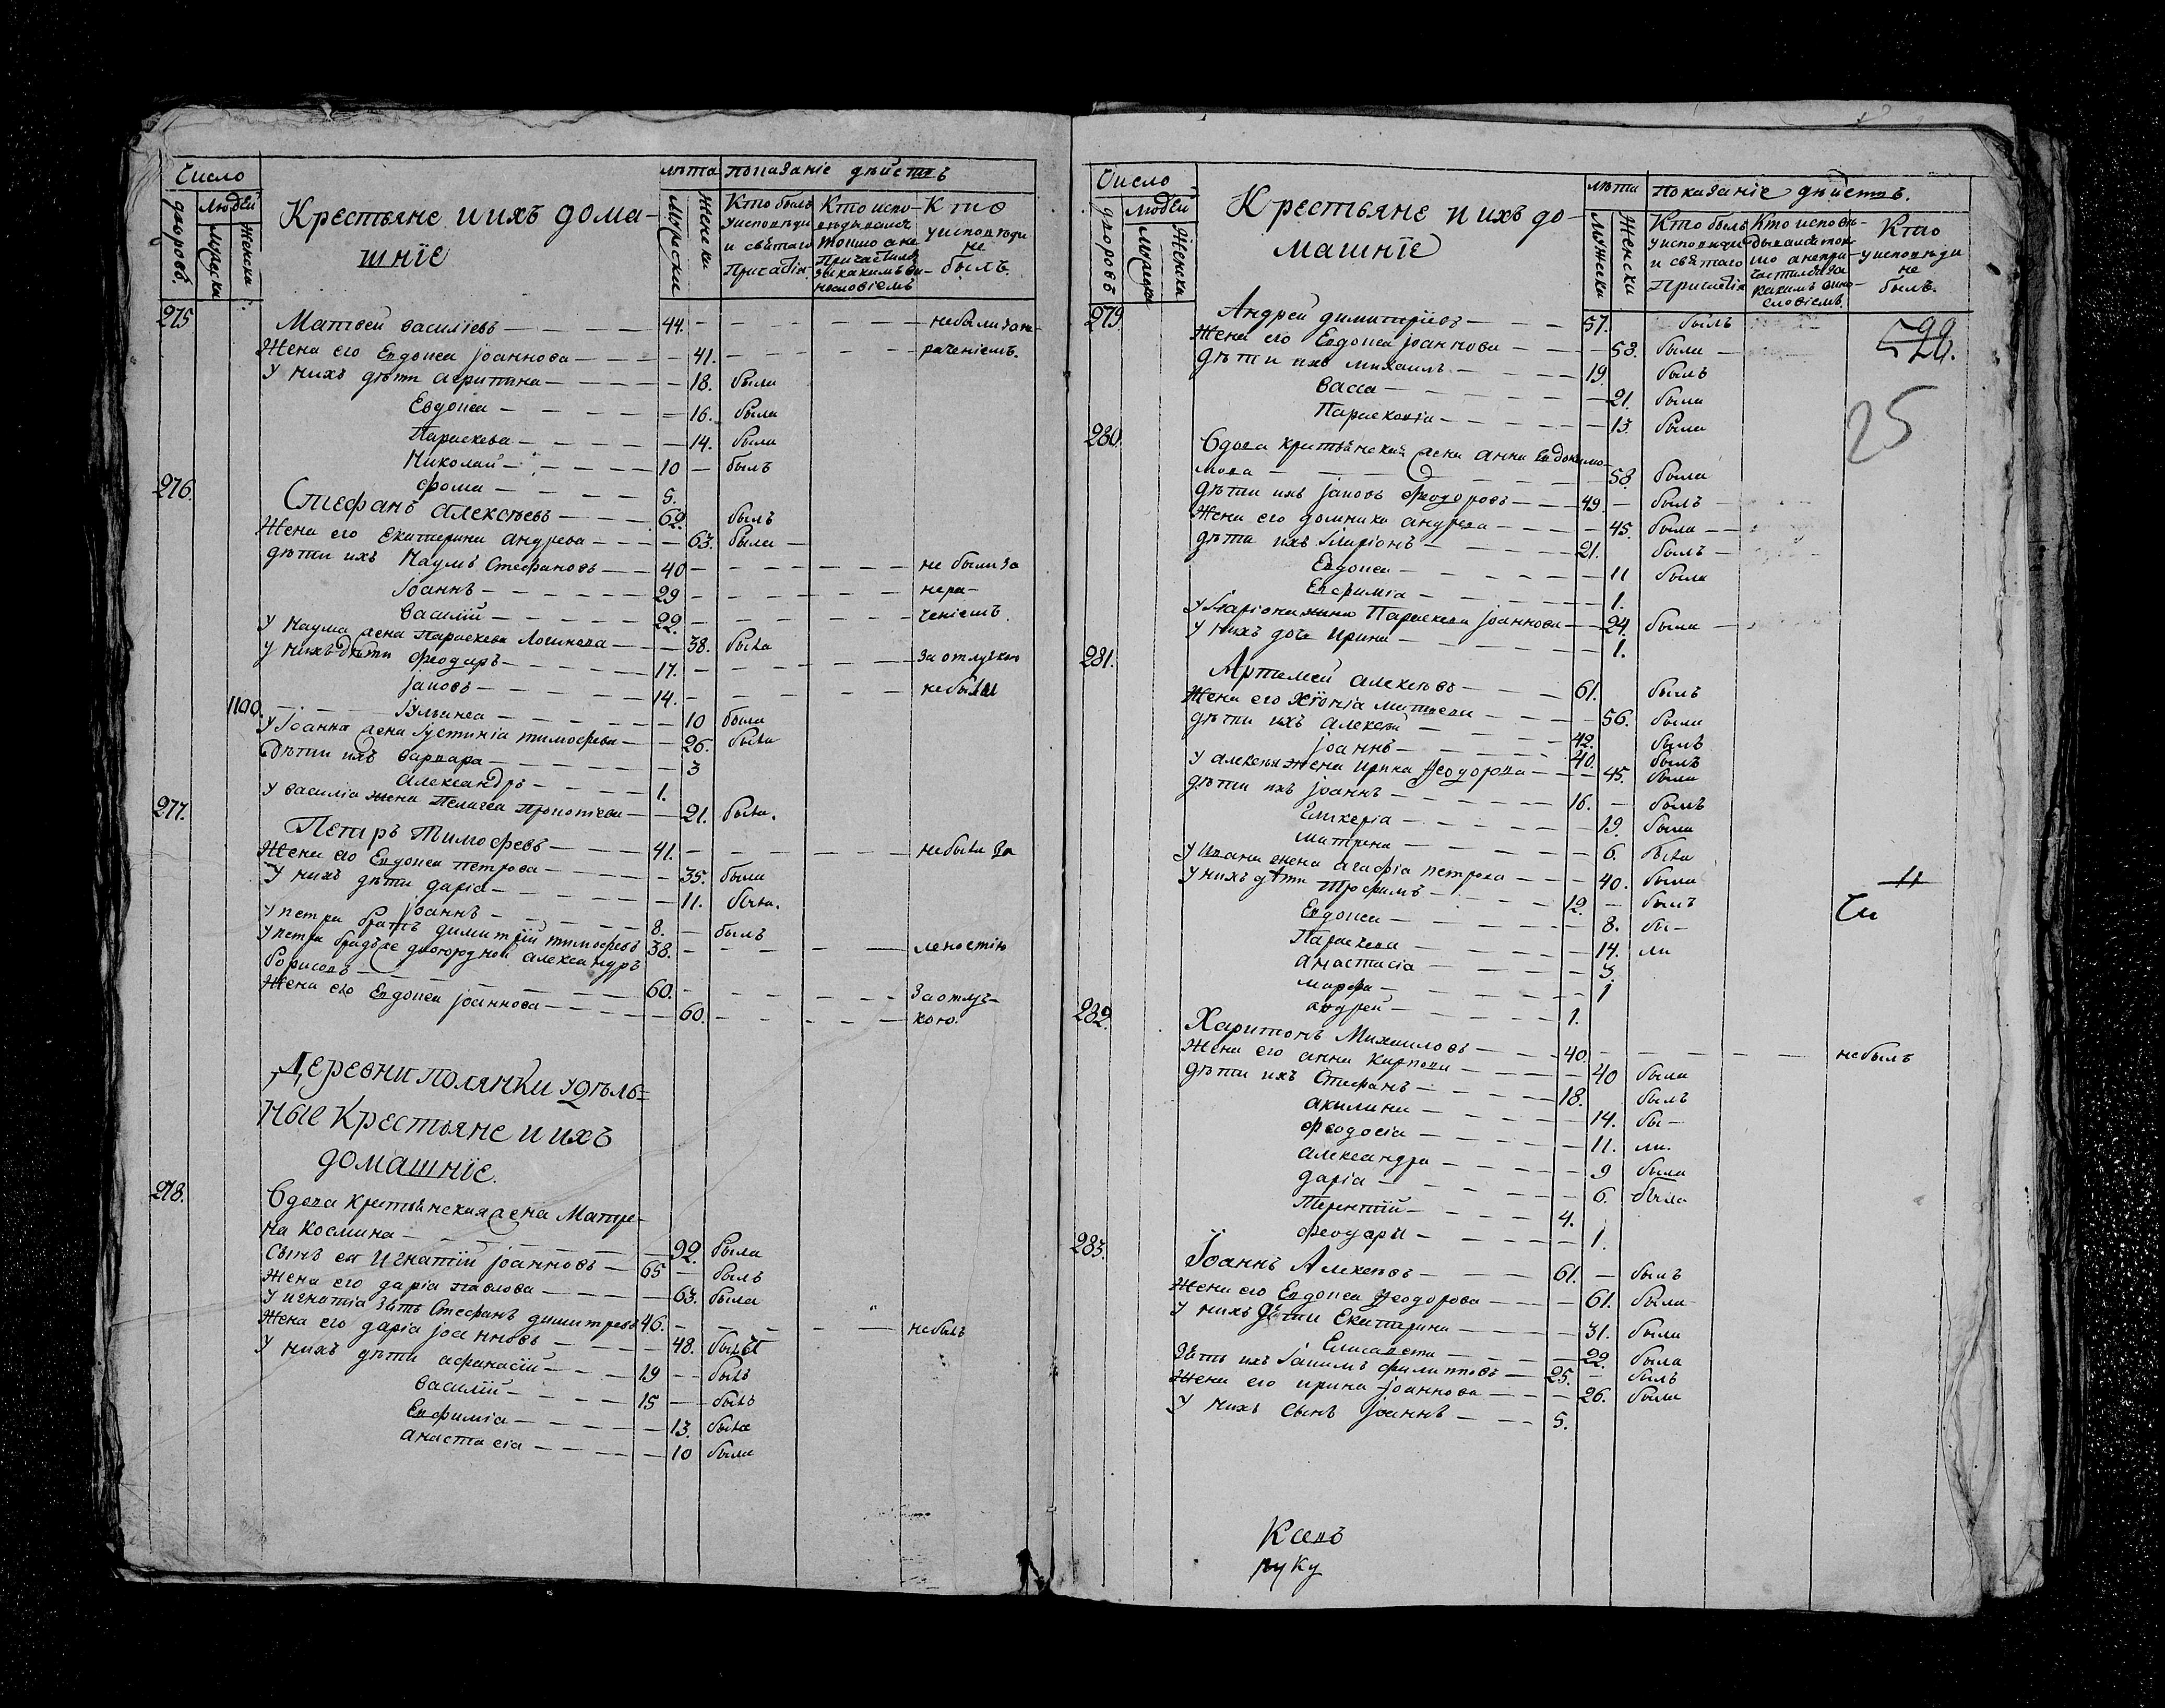 Число
Людей
дворовъ.
Мужеска
Женска
Крестьяне и ихъ дома-
шнїе
лѣта
Мужески
Женски
показанїе дѣйствъ
Кто былъ
у исповѣди
и святаго
Причастїя
Кто испо-
вѣдывался
токмо а не
Причастился
за какимъ ви-
нословїемъ
Кто
у исповѣди
не
былъ.
275 Матвей василїевъ — 44. — небыли за не-
Жена его Евдокеа јоаннова — 41. — раченїемъ.
У нихъ дѣти агрипина — 18. была
Евдокеа — 16. была
Параскева — 14. была
Николай — 10 — былъ
фома — 5.
276. Стефанъ алексѣевъ — 62. былъ
Жена его Екатерина андрева — 63. была —
дѣти ихъ Наумъ Стефановъ — 40 — не были за
јоаннъ — 29 — нера-
василїй — 22. — ченїемъ.
У Наума жена Параскева Логинова — 38. была
У нихъ дѣти феодоръ — 17. — за отлучкою
јаковъ — 14. — небыли
1100. — јульянеа — 10 была
У јоанна жена јустинїа тимофева — 26. была
дѣти ихъ варвара — 3
александръ — 1.
У василїа жена Пелагеа Прокопїева — 21. была.
277. Петръ Тимофевъ — 41. — небылъ за
Жена его Евдокеа петрова — 35. была
У нихъ дѣти дарїа — 11. была.
јоаннъ — 8. — былъ
У петра братъ димитрїй тимофевъ 38. — леностїю
У петра двоюродной александръ
борисовъ — 60. — За отлу-
Жена его Евдокеа јоаннова — 60. — кою.
Деревни полянки удѣль-
ные Крестьяне и ихъ
домашнїе.
278. Вдова крестьянская жена Матре-
на Космина — 92. была
Сынъ ея Игнатїй јоанновъ — 65 — былъ
Жена его дарїа павлова — 63. была
У игнатїа зять Стефанъ димитревъ 46. — небылъ
Жена его дарїа јоанновъ — 48. была
У нихъ дѣти афанасїй — 19 — былъ
василїй — 15 — былъ
Евфимїа — 13. была
анастасїа — 10 была
Число
Людей
дворовъ
Мужеска
Женска
Крестьяне и ихъ до-
машнїе
лѣта
Мужески
Женски
показанїе дѣйствъ.
Кто былъ
у исповѣди
и святаго
Причастїя
Кто исповѣ-
дывался ток-
мо а непри-
частился за
какимъ вино-
словїемъ.
Кто
у исповѣди
не
былъ.
279. Андрей димитрїевъ — 57. былъ
Жена его Евдокеа јоаннова — 53. была —
дѣти ихъ михаилъ — 19. былъ
васса — 21. была
Параскевїа — 13. была
25
280. Вдова крестьянская жена анна Евдокимо-
мова — 58. была
дѣти ихъ јаковъ феодоровъ — 49. — былъ —
Жена его домника андрева — 45. была —
дѣти ихъ јларїонъ — 21. былъ —
Евдокеа — 11 была
Евфимїа — 1.
У јларїона жена Параскева јоаннова — 24. была —
У нихъ дочь ирина — 1.
281. Артемей алексѣвъ — 61. былъ
Жена его Хїонїа матвева — 56. была
дѣти ихъ алексѣй — 42. былъ
јоаннъ — 40. былъ
У алексѣя жена ирина феодорова — 45. была
дѣти ихъ јоаннъ — 16. — былъ
Гликерїа — 19. была
матрена — 6. была
У ивана жена агафїа петрова — 40. была
У нихъ дѣти Трофимъ — 12. — былъ
Евдокеа — 8. бы-
Параскева — 14. ли
анастасїа — 3.
марфа — 1
андрей — 1.
282. Харитонъ Михаиловъ — 40. — небылъ
Жена его анна карпова — 40 была
дѣти ихъ Стефанъ — 18. былъ
акилина — 14. бы-
феодосїа — 11. ли.
александра — 9 была
дарїа — 6. была
Терентїй — 4.
феодоръ — 1.
283. Јоаннъ Алексѣвъ — 61. — былъ
Жена его Евдокеа феодорова — 61. была
У нихъ дѣти Екатерина — 31. была
Елисавета — 22. была
Зять ихъ јакимъ филипповъ — 25. — былъ
Жена его ирина јоаннова — 26. была
У нихъ сынъ јоаннъ — 5.
руку